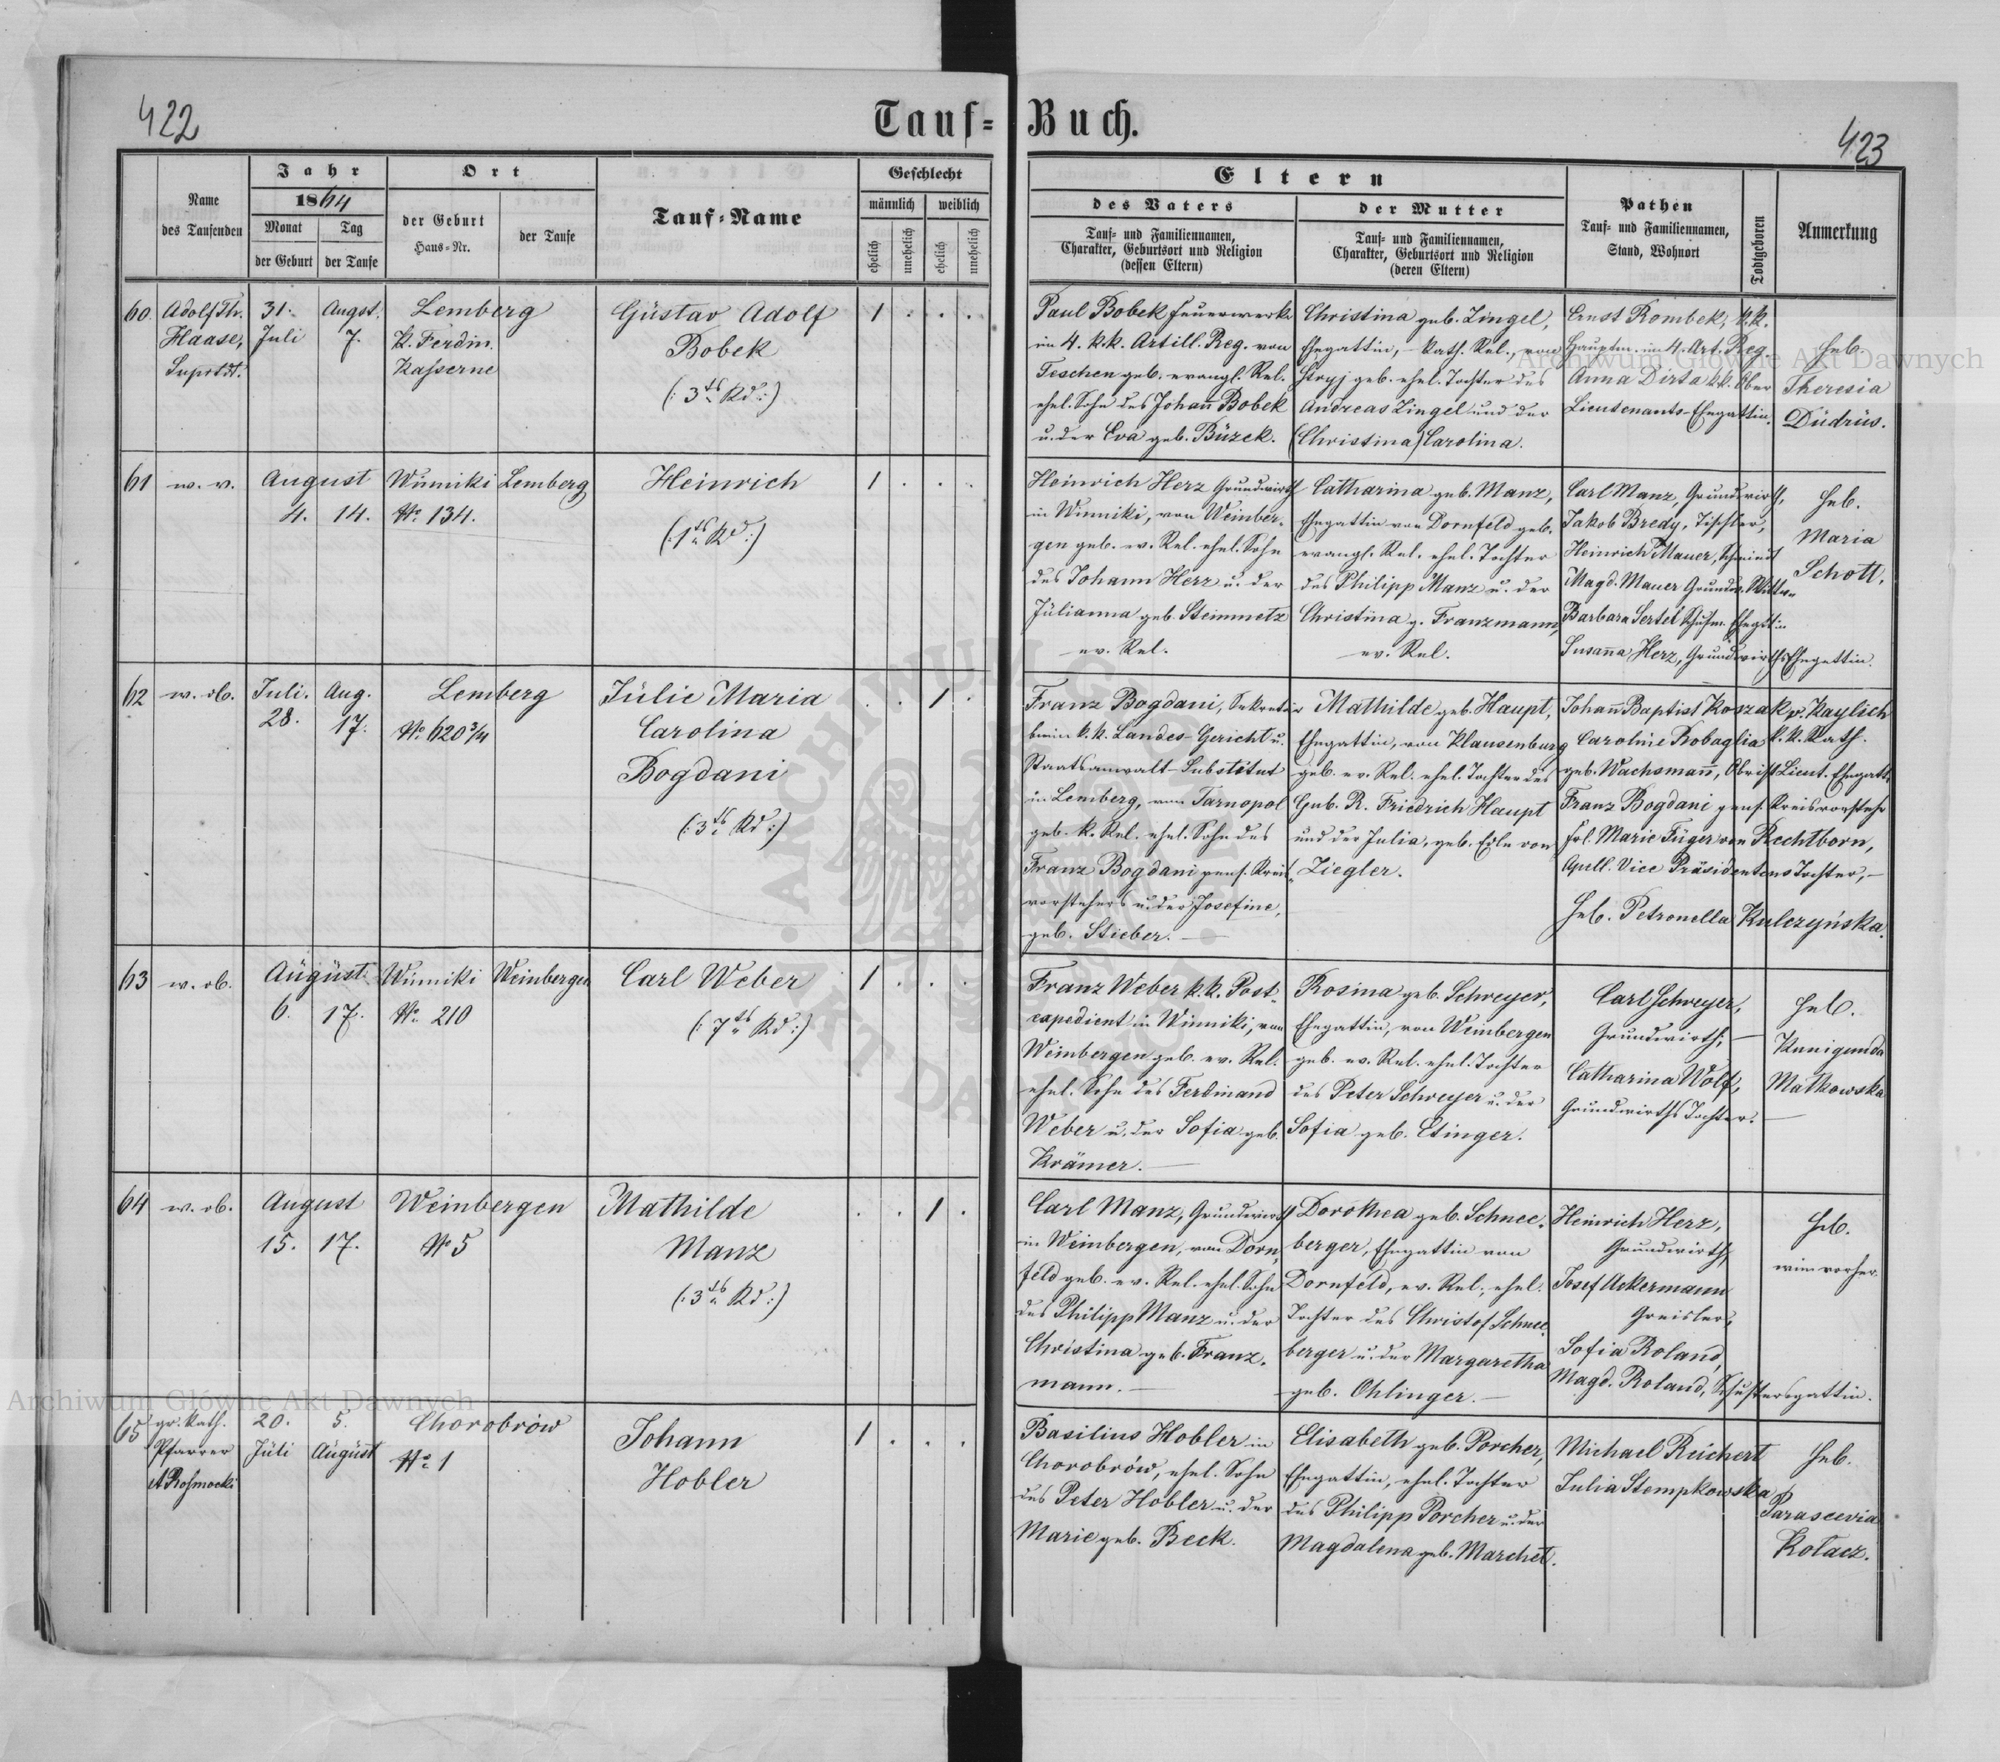 422
Tauf=
Buch.
423
Name
des Taufenden
Jahr
1864
Monat
der Geburt
Tag
der Taufe
Ort
der Geburt
Haus=Nr.
der Taufe
Tauf=Name
Geschlecht
männlich
weiblich
ehelich
unehelich
ehelich
unehelich
Eltern
des Vaters
Tauf= und Familiennamen,
Charakter, Geburtsort und Religion
(dessen Eltern)
der Mutter
Tauf= und Familiennamen,
Charakter, Geburtsort und Religion
(deren Eltern)
Pathen
Tauf= und Familiennamen,
Stand, Wohnort
Todtgeboren
Anmerkung
60.
Adolf Th.
Haase,
Suprtdt.
31.
Juli
Augst.
7.
Lemberg
K. Ferdin.
Kasserne
Gustav Adolf
Bobek
(: 3ts Kd :)
1 . . .
Paul Bobek Feuerwerker
im 4. k.k. Artill. Reg. von
Teschen geb. evangl. Rel.
ehel. Sohn des Johann Bobek
u. der Eva geb. Buzek.
Christina geb. Zingel,
Ehegattin, – kath. Rel., von
Stryj geb. ehel. Tochter des
Andreas Zingel und der
(Christina) Carolina.
Ernst Rombek, k.k.
Hauptm. im 4. Art. Reg.
Anna Dirta k.k. Ober
Lieutenants-Ehegattin.
Heb.
Theresia
Dudrus.
61
w. v.
August
4. 14.
Winniki
No. 134.
Lemberg
Heinrich
(: 1ts Kd :)
1 . . .
Heinrich Herz Grundwirth
in Winniki, von Weinber-
gen geb. ev. Rel. ehel. Sohn
des Johann Herz u. der
Julianna geb. Steinmetz
ev. Rel.
Catharina geb. Manz,
Ehegattin von Dornfeld geb.
evangl. Rel. ehel. Tochter
des Philipp Manz u. der
Christina g. Franzmann,
ev. Rel.
Carl Manz, Grundwirth,
Jakob Bredy, Tischler,
Heinrich Mauer, Schmiedt
Magd. Mauer
Barbara Sertel
Susanna Herz, Grundwirths Ehegattin.
Heb.
Maria
Schott.
62
w. ob.
Juli.
28.
Aug.
17.
Lemberg
No. 620 3/4
Julie Maria
Carolina
Bogdani
(: 3ts Kd :)
. . 1 .
Franz Bogdani, Sekretär
beim k.k. Landes-Gericht u.
Staatsanwalt-Substitut
in Lemberg, von Tarnopol
geb. k. Rel. ehel. Sohn des
Franz Bogdani pens. Kreis-
vorstehers u. der Josefine,
geb. Stieber. —
Mathilde geb. Haupt,
Ehegattin, von Klausenburg
geb. ev. Rel. ehel. Tochter des
Gub. R. Friedrich Haupt
und der Julia, geb. Edle von
Ziegler.
Johann Baptist Koszak v. Kaylich
Caroline Robaglia k.k. Rath.
geb. Wachsmann, Obrist Lieut. Ehegatt.
Franz Bogdani pens. Kreisvorsteher
Frl. Marie Füger von Rechtborn,
Apell. Vice Präsidentens Tochter, —
Heb. Petronella Kulczyńska.
63
w. ob.
August
6. 17.
Winniki
No. 210
Weinbergen
Carl Weber
(: 7ts Kd :)
1 . . .
Franz Weber k.k. Post-
expedient in Winniki, von
Weinbergen geb. ev. Rel.
ehel. Sohn des Ferdinand
Weber u. der Sofia geb.
Krämer. —
Rosina geb. Schreyer,
Ehegattin, von Weinbergen
geb. ev. Rel. ehel. Tochter
des Peter Schreyer u. der
Sofia geb. Etinger.
Carl Schreyer,
Grundwirth; —
Catharina Wolf,
Grundwirths Tochter.
Heb.
Kunigunda
Matkowska
64
w. ob.
August
15. 17.
Weinbergen
No 5
Mathilde
Manz
(: 3ts Kd :)
. . 1 .
Carl Manz, Grundwirth
in Weinbergen, von Dorn-
feld geb. ev. Rel. ehel. Sohn
des Philipp Manz u. der
Christina geb. Franz-
mann. —
Dorothea geb. Schnee-
berger, Ehegattin von
Dornfeld, ev. Rel., ehel.
Tochter des Christof Schnee-
berger u. der Margaretha
geb. Ohlinger. —
Heinrich Herz,
Grundwirth,
Josef Ackermann
Greisler,
Sofia Roland,
Magd. Roland, Schustersgattin.
Heb.
wie vorher.
65
gr. kath.
Pfarrer
20.
Juli
5.
August
Chorobrów
No. 1
Johann
Hobler
1 . . .
Basilius Hobler in
Chorobrów, ehel. Sohn
des Peter Hobler u. der
Marie geb. Beck.
Elisabeth geb. Porcher,
Ehegattin, ehel. Tochter
des Philipp Porcher u. der
Magdalena geb. Marchet.
Michael Reichert
Julia Stempkowska
Heb.
Parascevia
Kołacz.
Archiwum Główne Akt Dawnych
Archiwum Główne Akt Dawnych